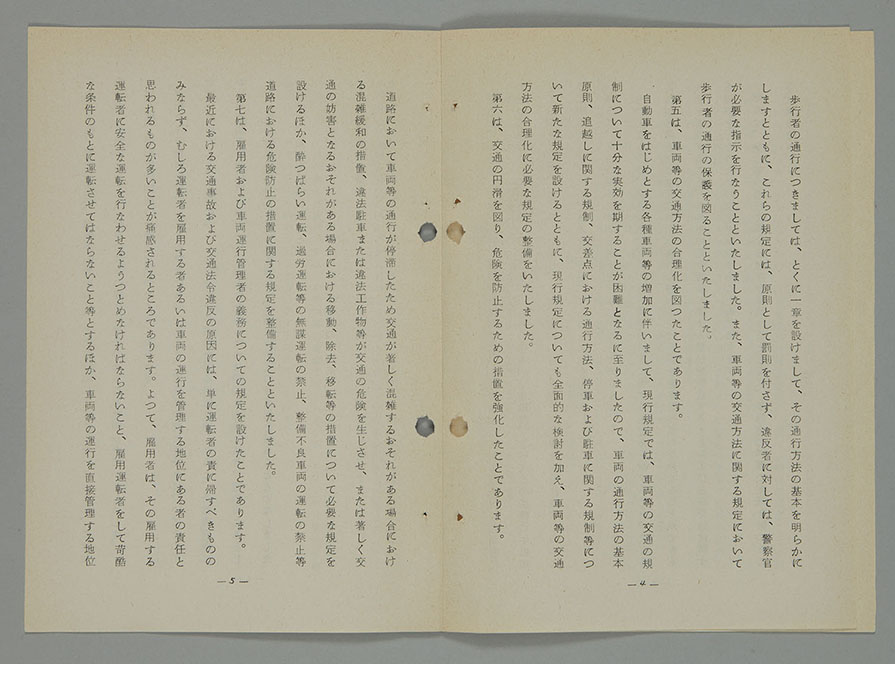 歩行者の通行につきましては、とくに一章を設けまして、その通行方法の基本を明らかに
しますとともに、これらの規定には、原則として罰則を付さず、違反者に対しては、警察官
が必要な指示を行なうことといたしました。また、車両等の交通方法に関する規定において
歩行者の通行の保護を図ることといたしました。
第五は、車両等の交通方法の合理化を図つたことであります。
自動車をはじめとする各種車両等の増加に伴いまして、現行規定では、車両等の交通の規
制について十分な実効を期することが困難となるに至りましたので、車両の通行方法の基本
原則、追越しに関する規制、交差点における通行方法、停車および駐車に関する規制等につ
いて新たな規定を設けるとともに、現行規定についても全面的な検討を加え、車両等の交通
方法の合理化に必要な規定の整備をいたしました。
第六は、交通の円滑を図り、危険を防止するための措置を強化したことであります。
—4—
道路において車両等の通行が停滞したため交通が著しく混雑するおそれがある場合におけ
る混雑緩和の措置、違法駐車または違法工作物等が交通の危険を生じさせ、または著しく交
通の妨害となるおそれがある場合における移動、除去、移転等の措置について必要な規定を
設けるほか、酔つぱらい運転、過労運転等の無謀運転の禁止、整備不良車両の運転の禁止等
道路における危険防止の措置に関する規定を整備することといたしました。
第七は、雇用者および車両運行管理者の義務についての規定を設けたことであります。
最近における交通事故および交通法令違反の原因には、単に運転者の責に帰すべきものの
みならず、むしろ運転者を雇用する者あるいは車両の運行を管理する地位にある者の責任と
思われるものが多いことが痛感されるところであります。よつて、雇用者は、その雇用する
運転者に安全な運転を行なわせるようつとめなければならないこと、雇用運転者をして苛酷
な条件のもとに運転させてはならないこと等とするほか、車両等の運行を直接管理する地位
—5—